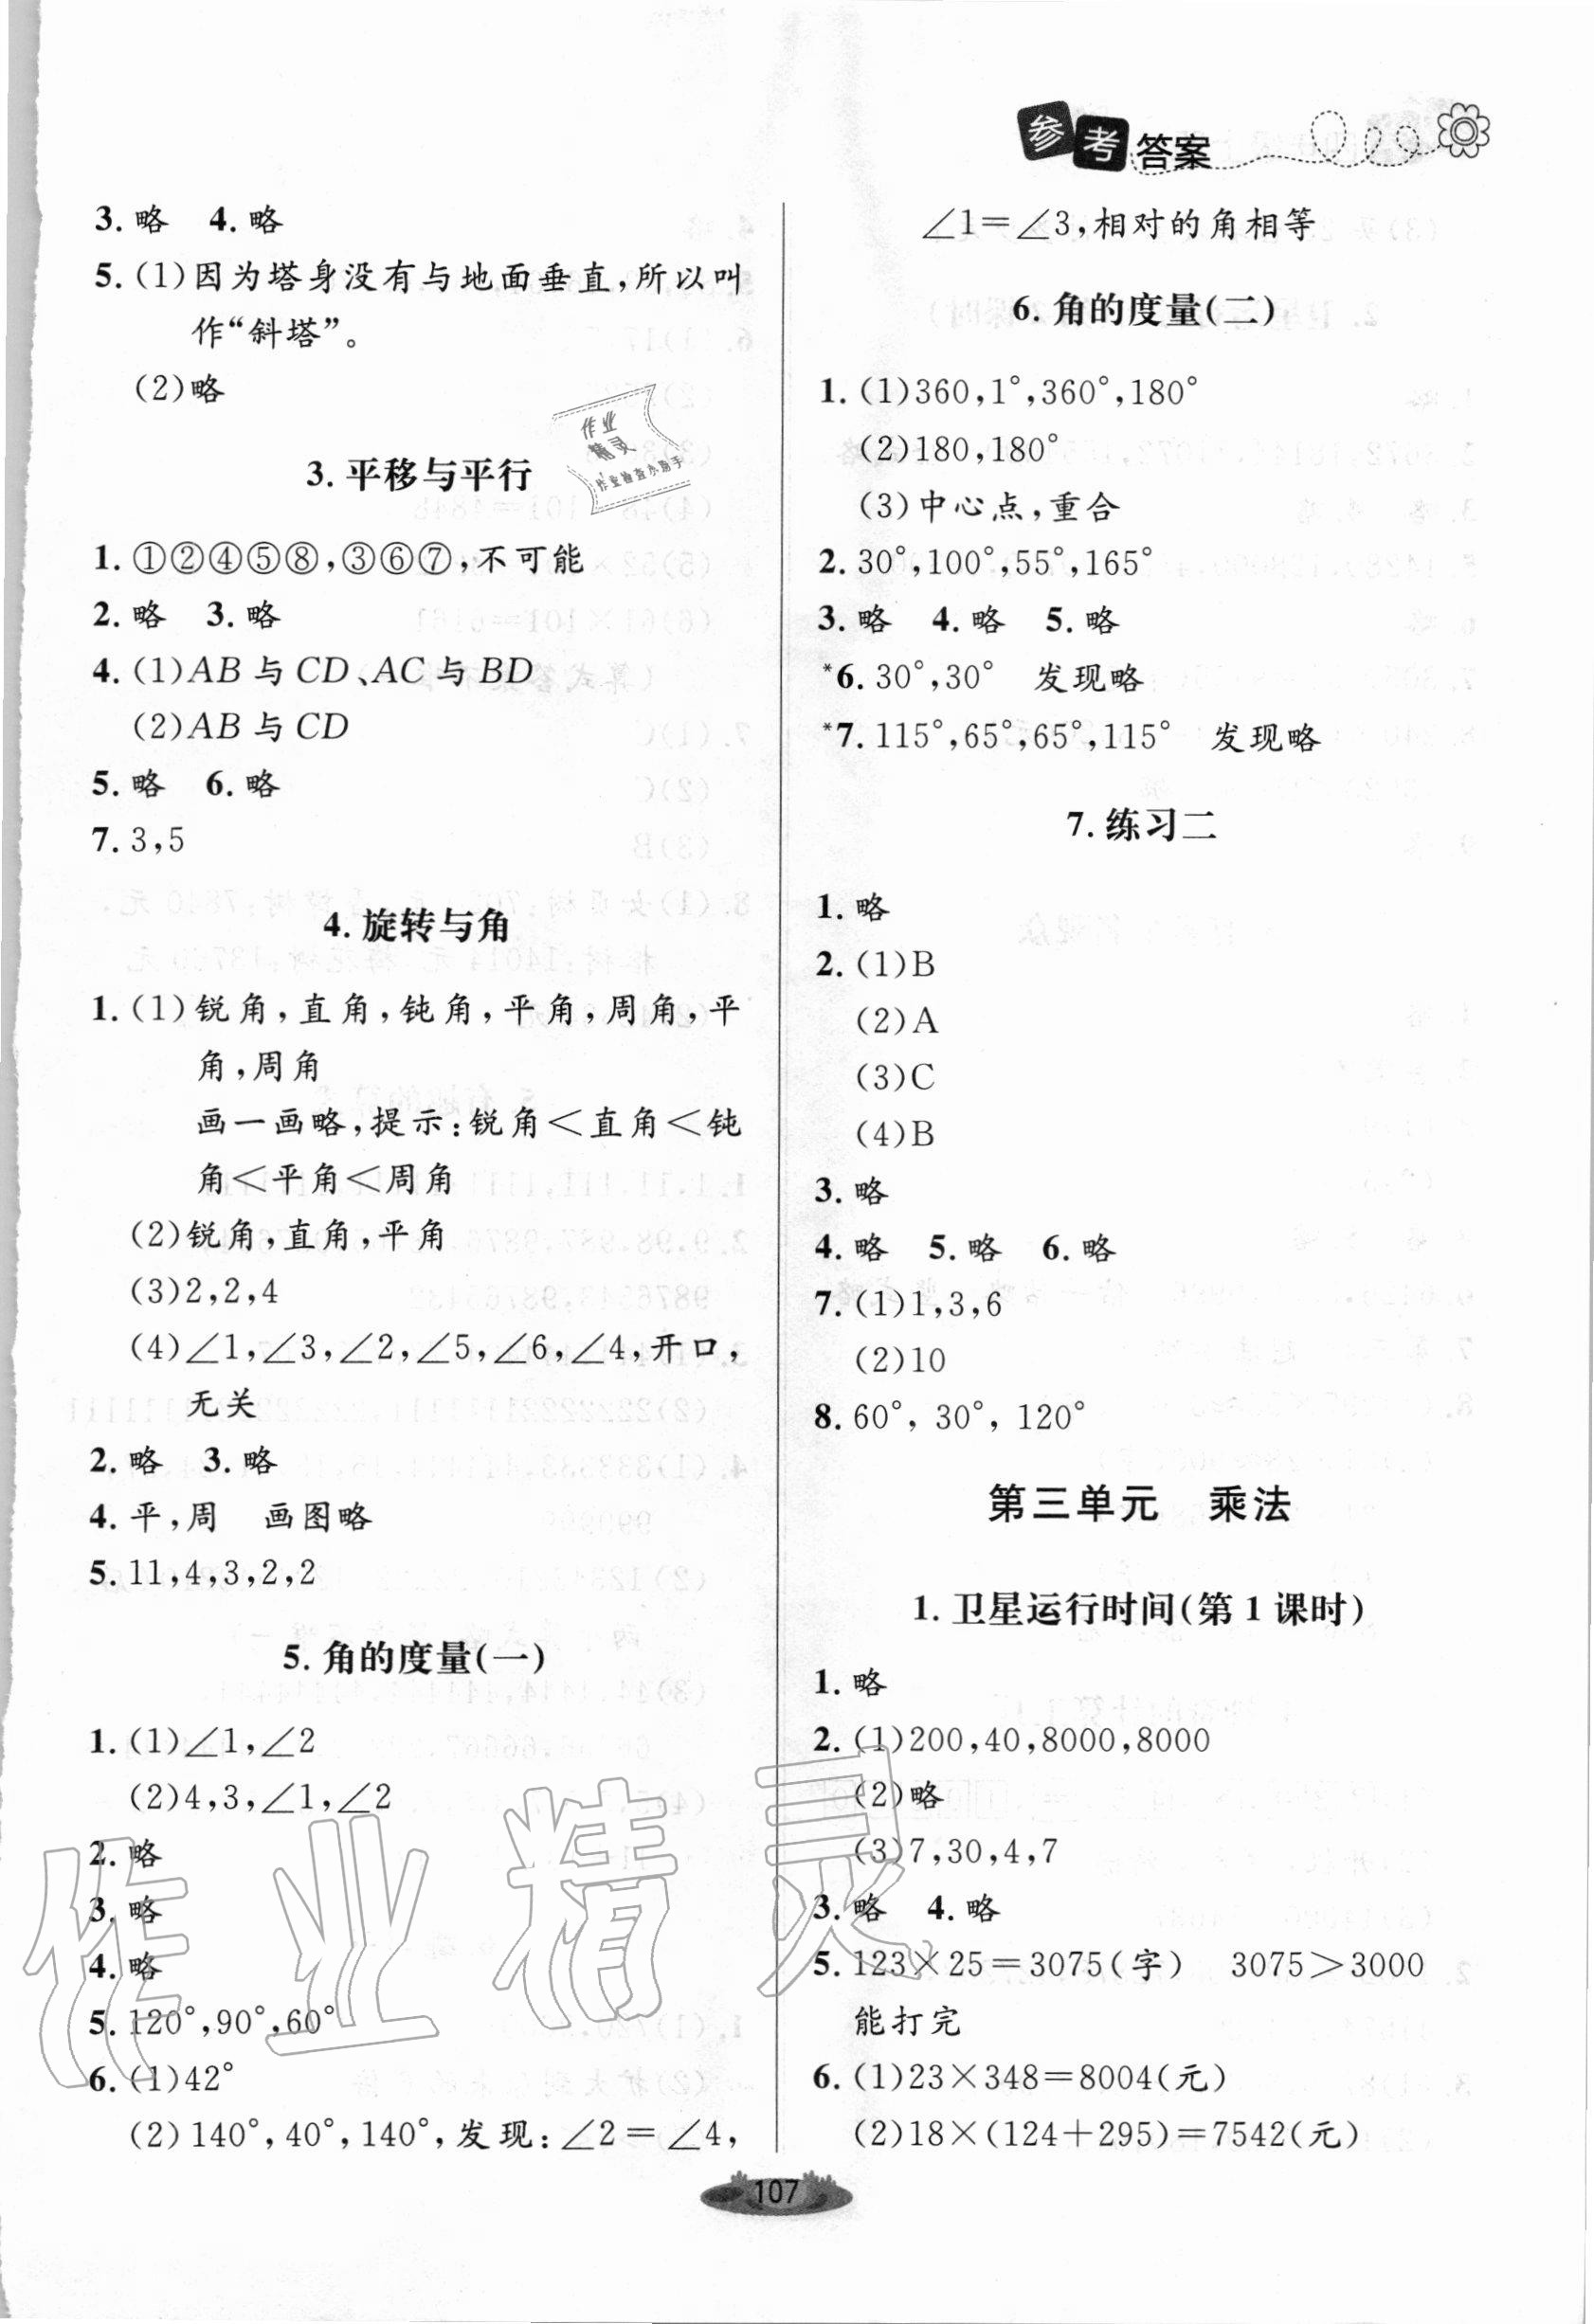 参考答案
3. 略　4. 略
5. (1)因为塔身没有与地面垂直,所以叫
作“斜塔”。
(2)略
3. 平移与平行
1. ①②④⑤⑧,③⑥⑦,不可能
2. 略　3. 略
4. (1)AB与CD、AC与BD
(2)AB与CD
5. 略　6. 略
7. 3,5
4. 旋转与角
1. (1)锐角,直角,钝角,平角,周角,平
角,周角
画一画略,提示:锐角<直角<钝
角<平角<周角
(2)锐角,直角,平角
(3)2,2,4
(4)∠1,∠3,∠2,∠5,∠6,∠4,开口,
无关
2. 略　3. 略
4. 平,周　画图略
5. 11,4,3,2,2
5. 角的度量(一)
1. (1)∠1,∠2
(2)4,3,∠1,∠2
2. 略
3. 略
4. 略
5. 120°,90°,60°
6. (1)42°
(2)140°,40°,140°,发现:∠2=∠4,
∠1=∠3,相对的角相等
6. 角的度量(二)
1. (1)360,1°,360°,180°
(2)180,180°
(3)中心点,重合
2. 30°,100°,55°,165°
3. 略　4. 略　5. 略
*6. 30°,30°　发现略
*7. 115°,65°,65°,115°　发现略
7. 练习二
1. 略
2. (1)B
(2)A
(3)C
(4)B
3. 略
4. 略　5. 略　6. 略
7. (1)1,3,6
(2)10
8. 60°, 30°, 120°
第三单元　乘法
1. 卫星运行时间(第1课时)
1. 略
2. (1)200,40,8000,8000
(2)略
(3)7,30,4,7
3. 略　4. 略
5. 123×25=3075(字)　3075>3000
能打完
6. (1)23×348=8004(元)
(2)18×(124+295)=7542(元)
107
作业
精灵
作业检查小助手
作业精灵